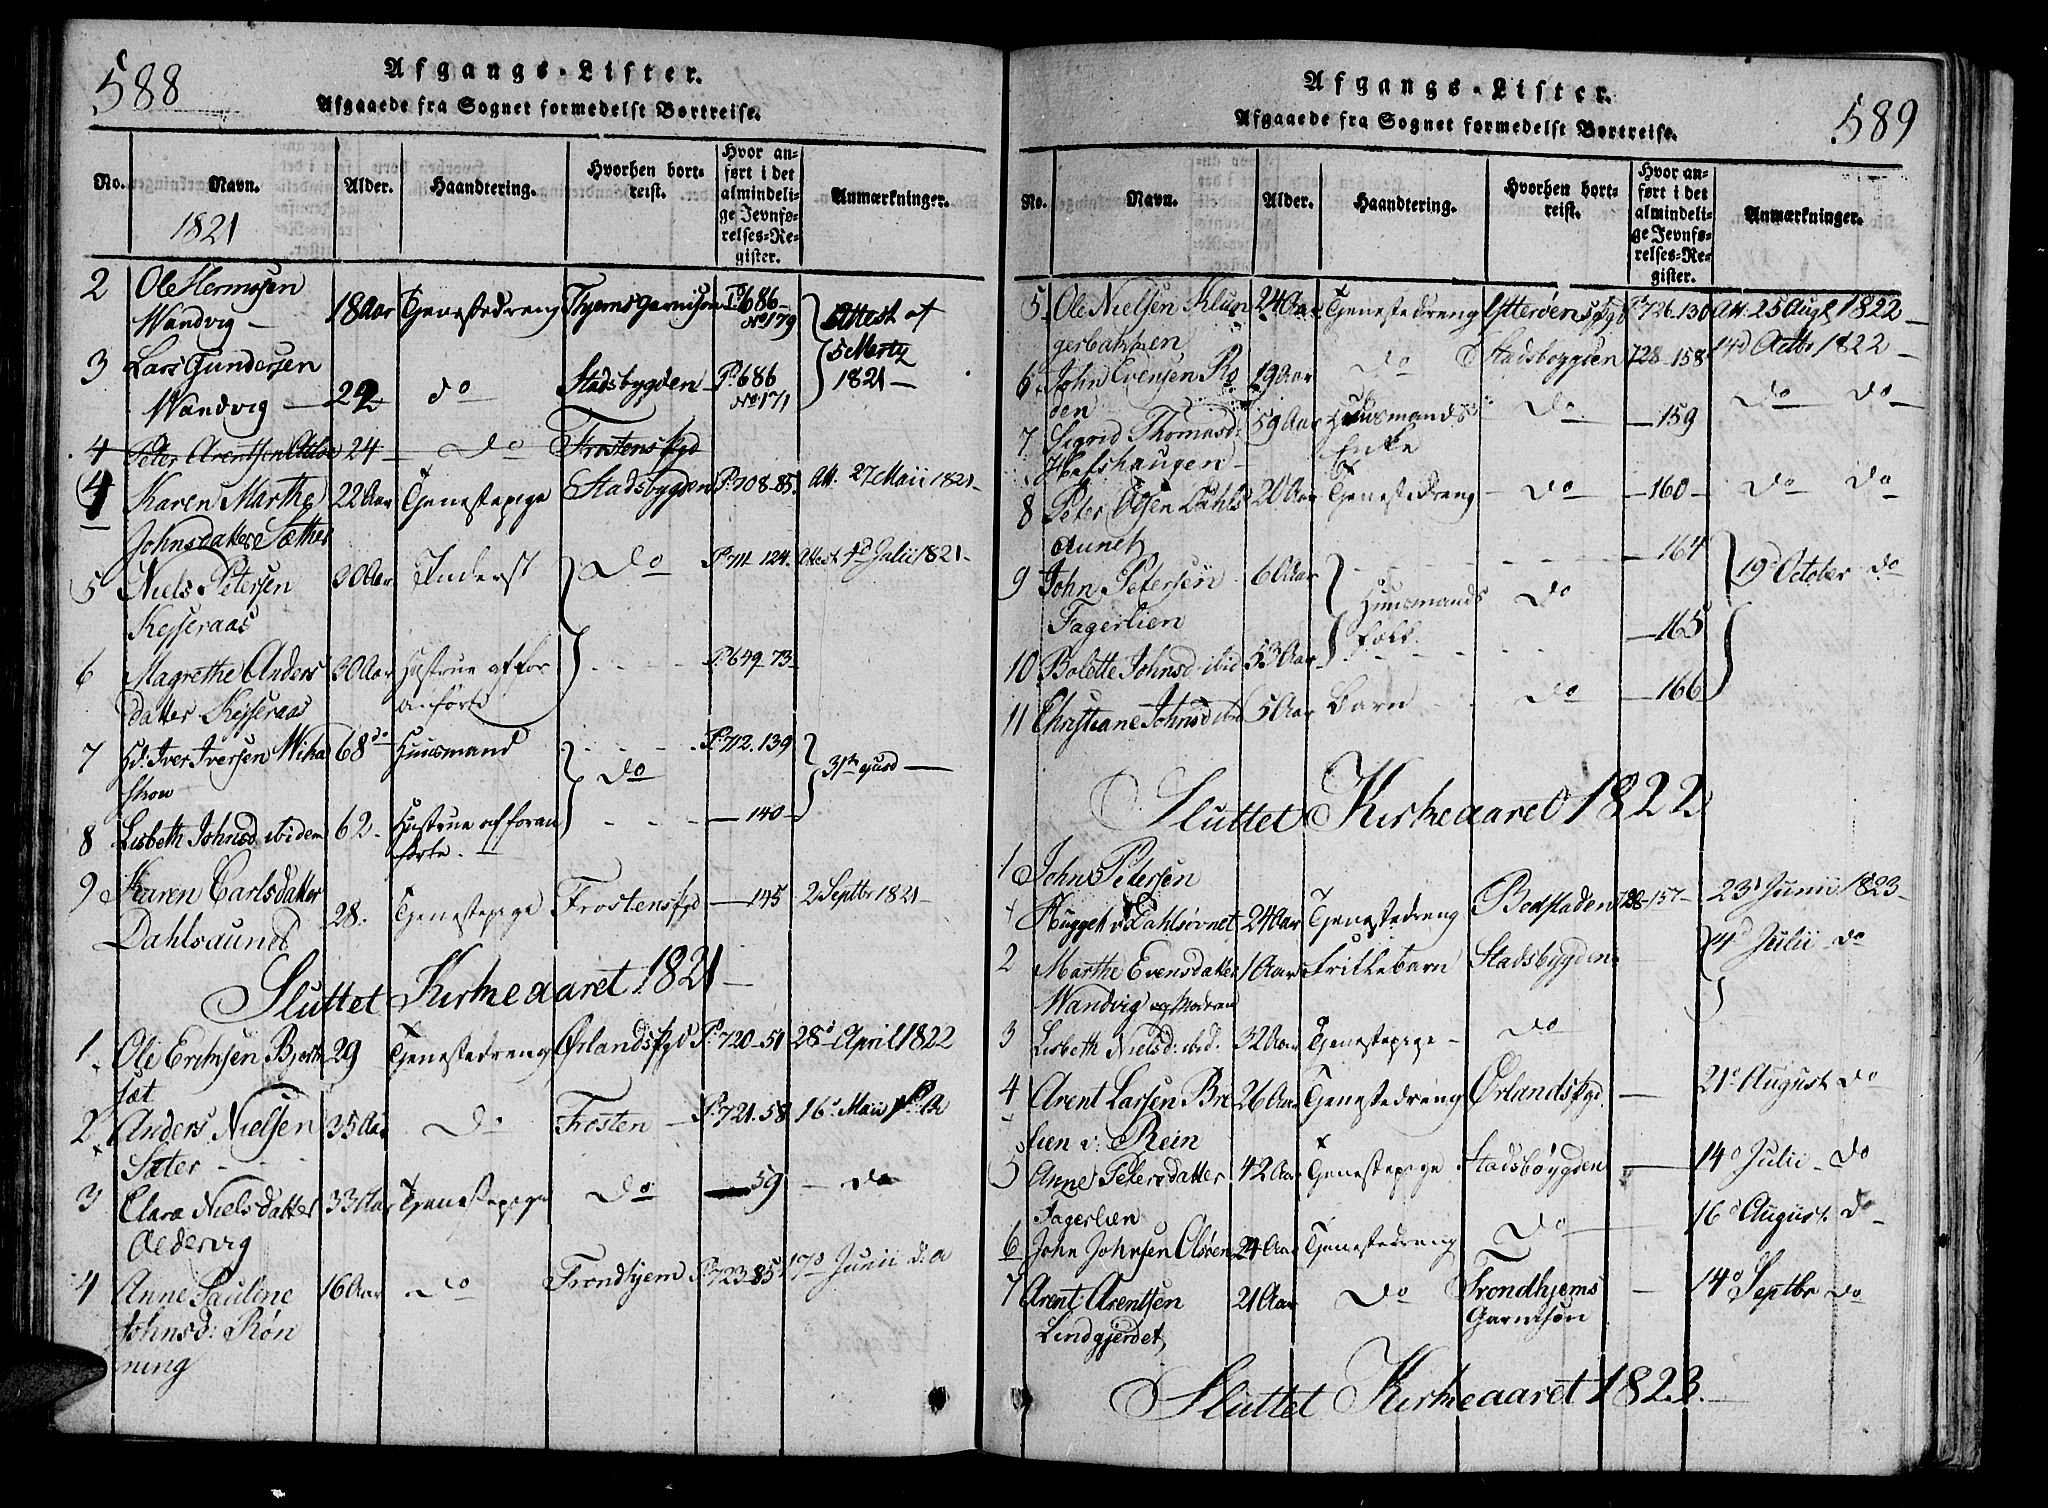 588
Afgangs-Lister.
Afgaaede fra Sognet formedelst Bortreise.
No. Navn. Alder. Haandtering. Hvorhen bortreist. Hvor anført i det almindelige Jevnførelses-Register. Anmærkninger.
1821
2 Ole Hermssen 18 Aar Tjenestedreng Thjems Garnison P. 686 Attest af
Wandvig No 179 5 Martz
3 Lars Gundersen 1821
Wandvig 22 do Stadsbygden P. 686
No 171
4 Peter Arentsen 24 Do Frostens Pgd
4 Karen Marthe 22 Aar Tjenestepige Stadsbygden P. 708-85. Att. 27 Maii 1821
Johnsdatter Sæther
5 Niels Petersen 30 Aar Inderst Do P. 711 124. Attest 4d Julii 1821
Kejseraas
6 Magrethe Anders 30 Aar Hustrue af for P. 649-73
datter Kejseraas anførte
7 Iver Iversen Wiha 68 Huusmand Do P. 712. 139 31te ejusd
8 Lisbeth Johnsd. ibidem 62 Hustrue af foran 140
førte.
9 Karen Carlsdatter
Dahlsaunet 28. Tjenestepige Frostens Pgd 145 2 Septbr 1821
Sluttet Kirkeaaret 1821
1 Ole Erichsen Bjerk 29 Tjenestedreng Ørlands Pgd P. 720-51 28d April 1822
sæt
2 Anders Nielsen 35 Aar Do Frosten P. 721. 58 16d Maii
Sæter
3 Clara Nielsdatter 33 Aar Tjenestepige Do 59 do
Oldervig
4 Anne Pauline 16 Aar Do Trondhjem P. 723-85 17d Junii d. A
Johnsd: Røn
ning
589
Afgangs-Lister.
Afgaaede fra Sognet formedelst Bortreise.
No. Navn. Alder. Haandtering. Hvorhen bortreist. Hvor anført i det almindelige Jevnførelses-Register. Anmærkninger.
5 Ole Nielsen Klun 24 Aar Tjenestedreng Ytterøens Pgd P. 726. 130 Att. 25 Augt 1822
gerbakken
6 John Evensen Ro 19 Aar Do Stadsbygden 728-158 14d Octbr 1822
den
7 Sigrid Thomasd: 59 Aar Huusmands Do 159 Do Do
Hafshaugen Enke
8 Peter Dahls 20 Aar Tjenestedreng Do 160 Do Do
aunet
9 John Petersen 60 Aar 164 19d October do
Fagerlien Huusmands Do
10 Bolette Johnsd. ibid 53 Aar Folk 165
11 Christiane Johnsd ibid 5 Aar Barn Do 166
Sluttet Kirkeaaret 1822
1 John Petersen
Hugget v. Dahlsøvnet 24 Aar Tjenestedreng Bedstaden 728-157 23d Junii 1823
2 Marthe Evensdatter 1 Aar Frillebarn Stadsbygden 4d Julii do
Wandvig og Moderen
3 Lisbeth Nielsd: ibid. 32 Aar Tjenestepige Do
4 Arent Larsen Bre 26 Aar Tjenestedreng Ørlands Pgd. 21d August Do
lien v: Rein
5 Anne Petersdatter 42 Aar Tjenestepige Stadsbøygden 14d Julii Do
Fagerlien
6 John Johnsen Olsøen 24 Aar Tjenestedreng Do 16d August. Do
7 Arent Arentsen 21 Aar Do Trondhjems 14d Septbr Do
Lindgjerdet Garnison
Sluttet Kirkeaaret 1823.